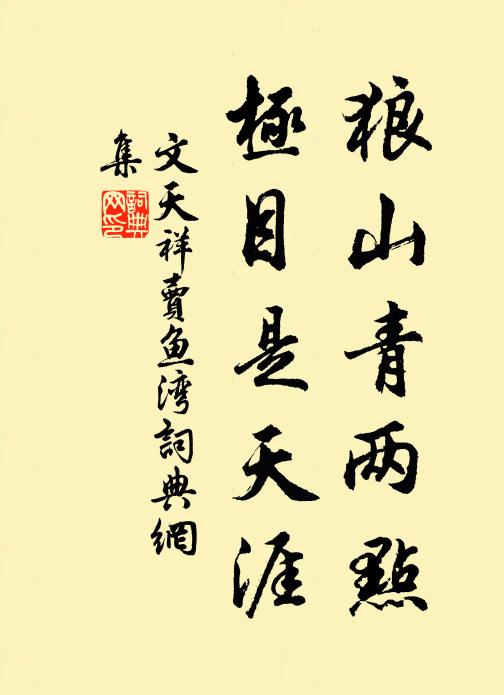 狼山青两點
極目是天涯
文天祥賣魚湾詞典網
集
詞典
网印